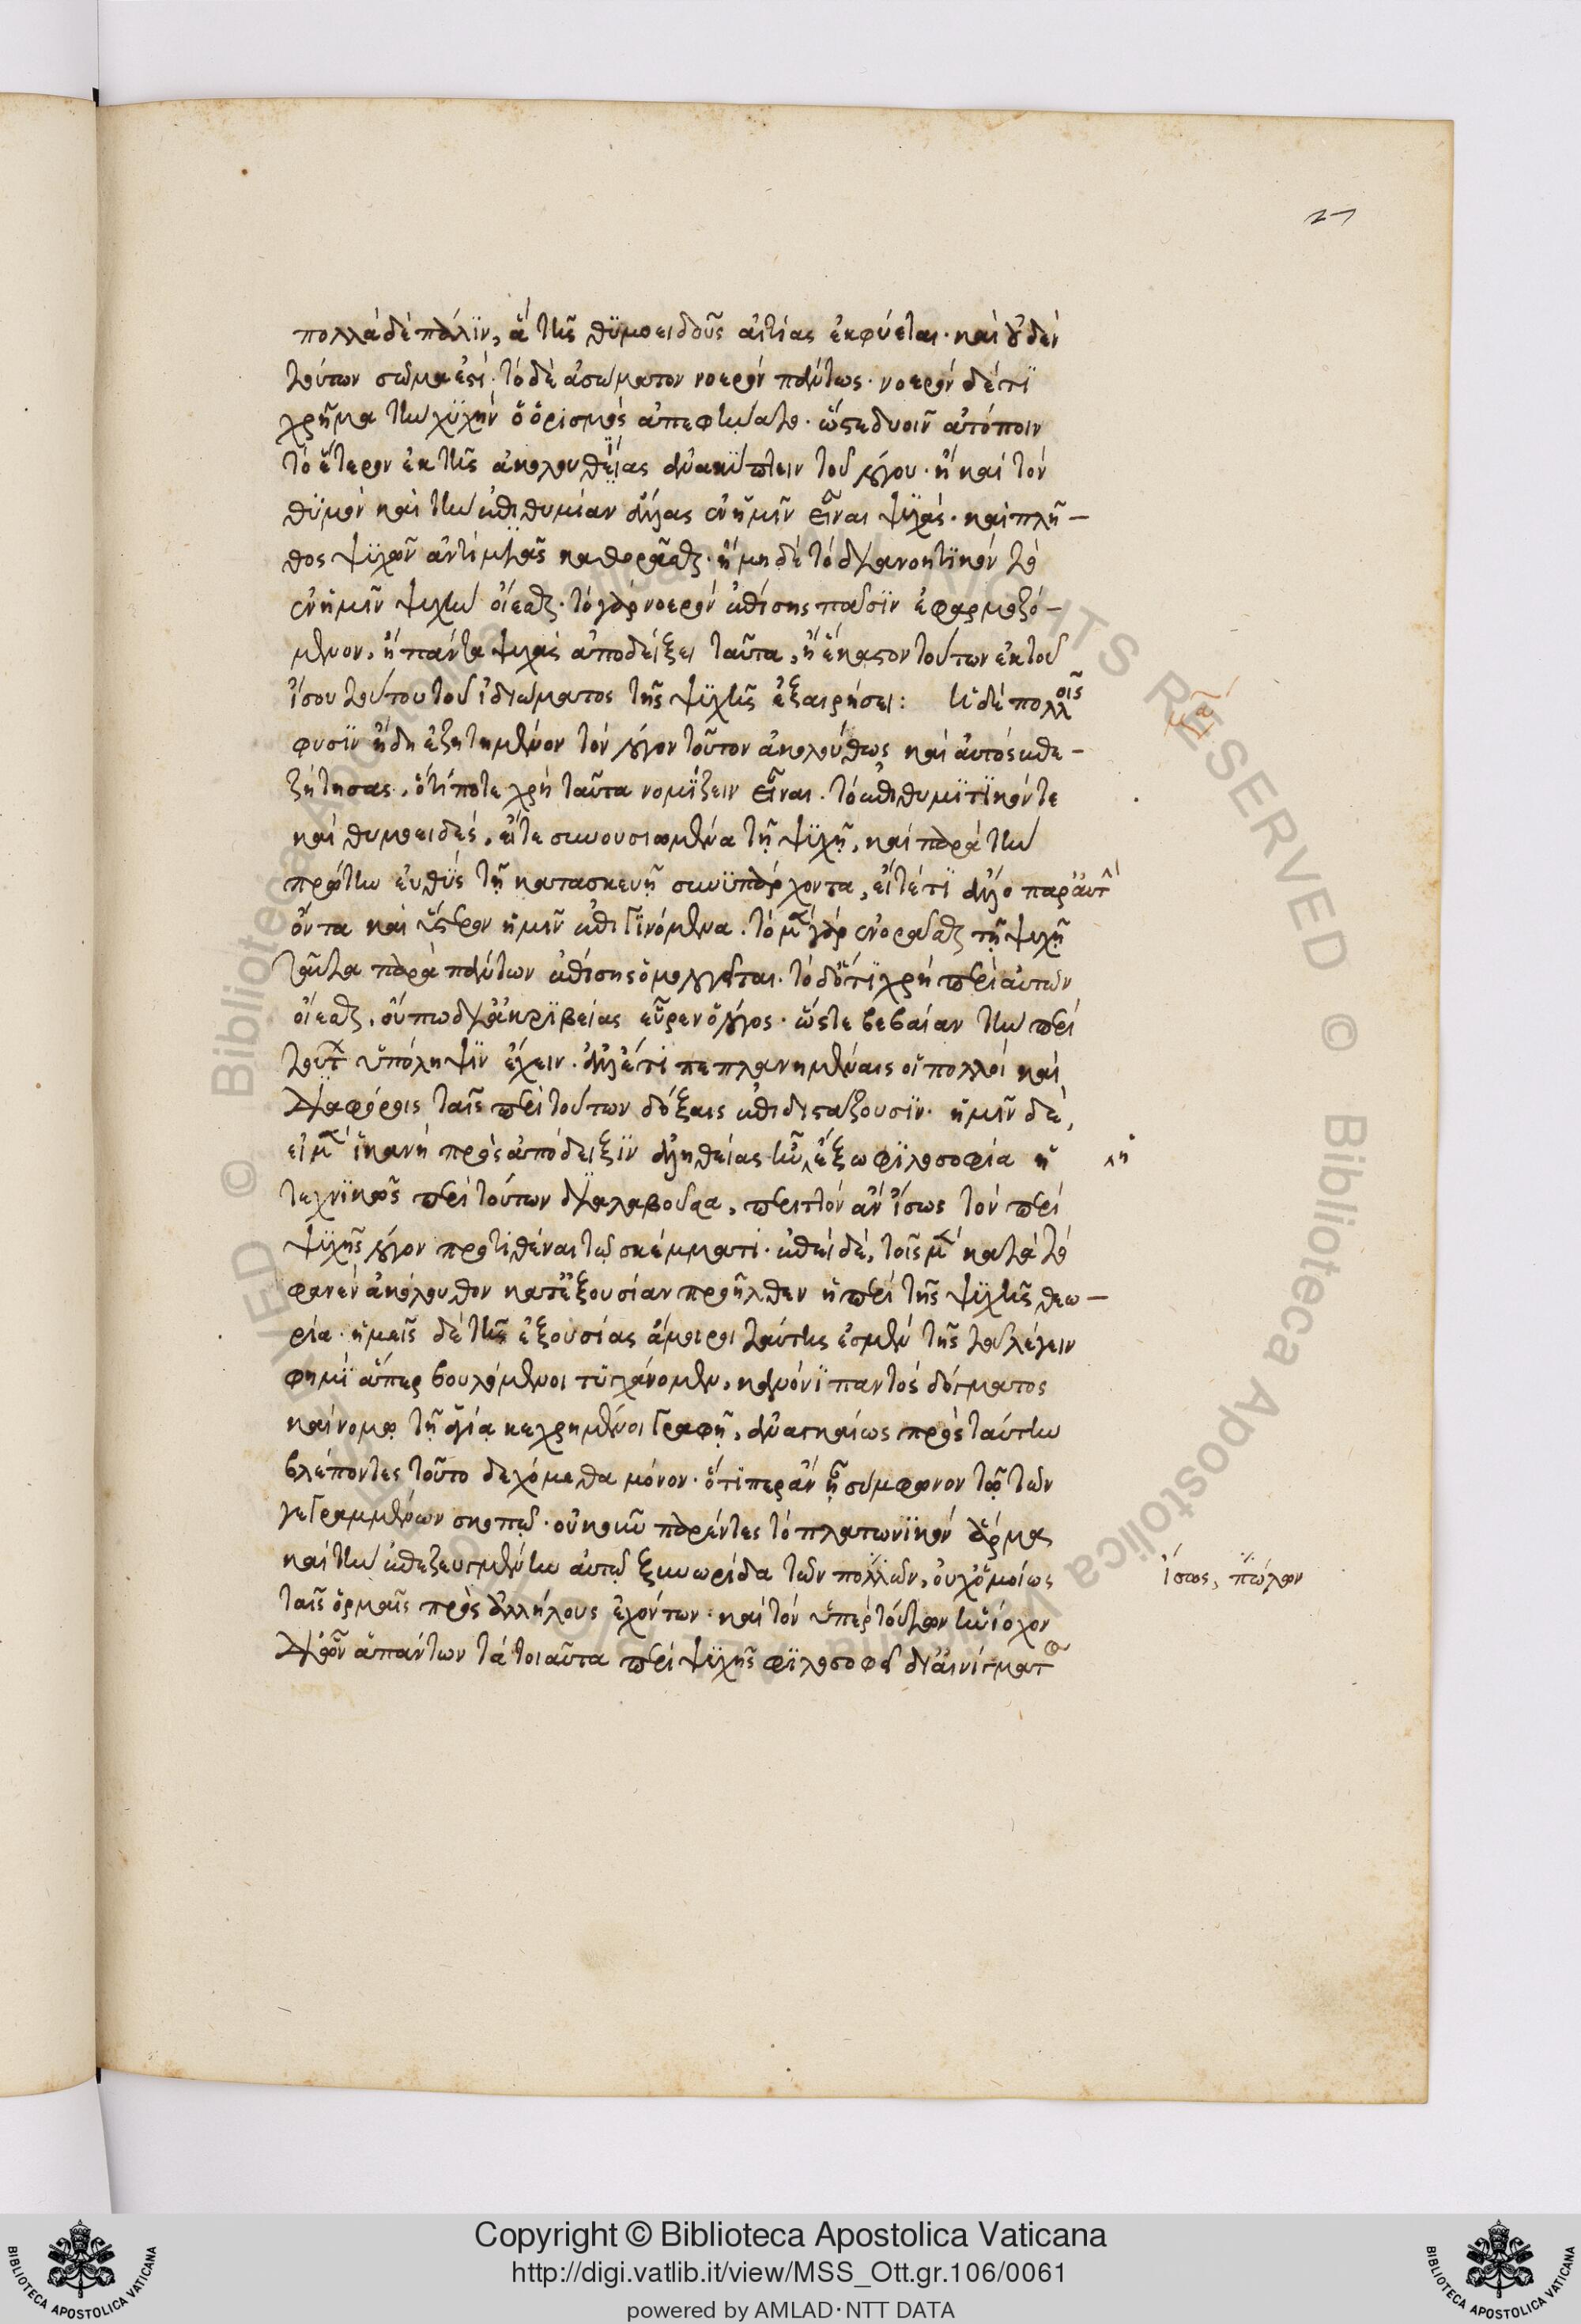 27
πολλὰ δὲ πάλϊν, ἃ τῆς θϋμοειδοῦς αἰτίας ἐκφύεται· καὶ οὐδὲν
τούτων σῶμα ἐστί· τὸ δὲ ἀσώματον νοερὸν πάντως· νοερὸν δέ τϊ
χρῆμα τὴν ψϋχὴν ὁ ὁρισμὸς ἀπεφήνατο· ὥστε δυοῖν ἀτόποιν
τὸ ἕτερον ἐκ τῆς ἀκολουθείας ἀνακύπτειν τοῦ λόγου· ἢ καὶ τὸν
θϋμὸν καὶ τὴν ἐπιθυμίαν ἄλλας ἐν ἡμῖν εἶναι ψϋχάς· καὶ πλῆ-
θος ψϋχῶν ἀντὶ μιᾶς καθορᾶσθαι· ἢ μηδὲ τὸ διανοητϊκὸν τὸ
ἐν ἡμῖν ψυχὴν οἴεσθαι· τὸ γὰρ νοερὸν ἐπίσης πᾶσϊν ἐφαρμοζό-
μενον, ἢ πάντα ψυχὰς ἀποδείξει ταῦτα, ἢ ἕκαστον τούτων ἐκ τοῦ
ἴσου τούτου τοῦ ἰδιώματος τῆς ψϋχῆς ἐξαιρήσει: Τί δὲ πολλοῖς
μα
φυσϊν ἤδη ἐζητημένον τὸν λόγον τοῦτον ἀκολούθως καὶ αὐτὸς ἐπε-
ζήτησας, ὅ τί ποτε χρὴ ταῦτα νομΐζειν εἶναι. τὸ ἐπιθυμϊτϊκόν τε
καὶ θυμοειδές, εἴτε συνουσιωμένα τῇ ψϋχῇ, καὶ παρὰ τὴν
πρώτην εὐθϋς τῇ κατασκευῇ συνϋπάρχοντα, εἴτέ τϊ ἄλλο παρ' αὐτὴν
ὄντα καὶ ὕστερον ἡμῖν ἐπιγινόμενα. τὸ μὲν γὰρ ἐνορᾶσθαι τῇ ψυχῇ
ταῦτα παρὰ πάντων ἐπίσης ὁμολογεῖται. τὸ δ' ὅ τϊ χρὴ περὶ αὐτῶν
οἴεσθαι, οὔπω δι' ἀκρϊβείας εὗρεν ὁ λόγος· ὥστε βεβαίαν τὴν περὶ
τούτων ὑπόληψϊν ἔχειν. ἀλλ' ἔτϊ πεπλανημέναις οἱ πολλοὶ καὶ
διαφόροις ταῖς περὶ τούτων δόξαις ἐπιδιστάζουσϊν· ἡμῖν δὲ,
εἰ μὲν ἱκανὴ πρὸς ἀπόδειξϊν ἀληθείας ἦν ἔξω φϊλοσοφία ἡ
ἡ
τεχνϊκῶς περὶ τούτων διαλαβοῦσα, περιττὸν ἂν ἴσως τὸν περὶ
ψϋχῆς λόγον προτιθέναι τῷ σκέμματι· ἐπεὶ δὲ, τοῖς μὲν κατὰ τὸ
φανὲν ἀκόλουθον κατ' ἐξουσίαν προῆλθεν ἡ περὶ τῆς ψϋχῆς θεω-
ρία· ἡμεῖς δὲ τῆς ἐξουσίας ἄμοιροι ταύτης ἐσμὲν τῆς τοῦ λέγειν
φημὶ ἅπερ βουλόμενοι τϋγχάνομεν, κανόνϊ παντὸς δόγματος
καὶ νόμῳ τῇ ἁγίᾳ κεχρημένοι γραφῇ, ἀναγκαίως πρὸς ταύτην
βλέποντες τοῦτο δεχόμεθα μόνον· ὅ τί περ ἂν ᾖ σύμφωνον τῷ τῶν
γεγραμμένων σκοπῷ· οὐκοῦν παρέντες τὸ πλατωνϊκὸν ἅρμα
καὶ τὴν ἐπεζευγμένην αὐτῷ ξυνωρίδα τῶν πολλῶν, οὐχ ὁμοίως
ἴσως, πώλων
ταῖς ὁρμαῖς πρὸς ἀλλήλους ἐχόντων· καὶ τὸν ὑπὲρ τούτων ἡνίοχον
δι' ὧν ἁπάντων τὰ τοιαῦτα περὶ ψϋχῆς φϊλοσοφεῖ δι' αἰνίγματος
Copyright © Biblioteca Apostolica Vaticana
http://digi.vatlib.it/view/MSS_Ott.gr.106/0061
powered by AMLAD·NTT DATA